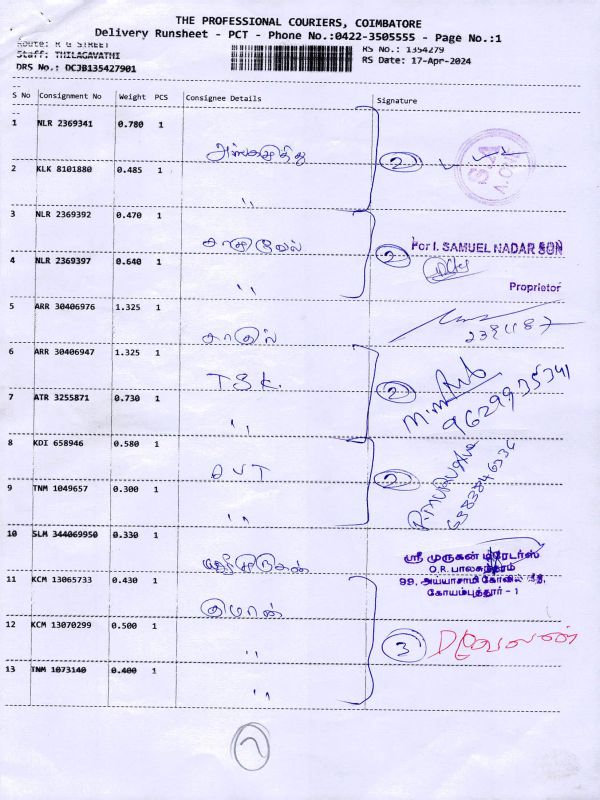 THE PROFESSIONAL COURIERS, COIMBATORE
Delivery Runsheet - PCT - Phone No.:0422-3505555 - Page No.:1
Route: M G STREET
RS No.: 1354279
Staff: THILAGAVATHI
RS Date: 17-Apr-2024
DRS No.: DCJB135427901
S No Consignment No Weight PCS Consignee Details Signature
1 NLR 2369341 0.780 1
2
2 KLK 8101880 0.485 1 "
3 NLR 2369392 0.470 1
2 For I. SAMUEL NADAR SON
4 NLR 2369397 0.640 1 "
Proprietor
5 ARR 30406976 1.325 1
6 ARR 30406947 1.325 1 T.S.K.
2
9629935341
7 ATR 3255871 0.730 1 "
8 KDI 658946 0.580 1 DVT
2
9 TNM 1049657 0.300 1 "
10 SLM 344069950 0.330 1
ஸ்ரீ முருகன் டிரேடர்ஸ்
O.R. பாலசுந்தரம்
99, அய்யாசாமி கோவில் வீதி,
கோயம்புத்தூர் - 1
11 KCM 13065733 0.430 1 குமரன்
12 KCM 13070299 0.500 1 "
3
13 TNM 1073140 0.400 1 "
7